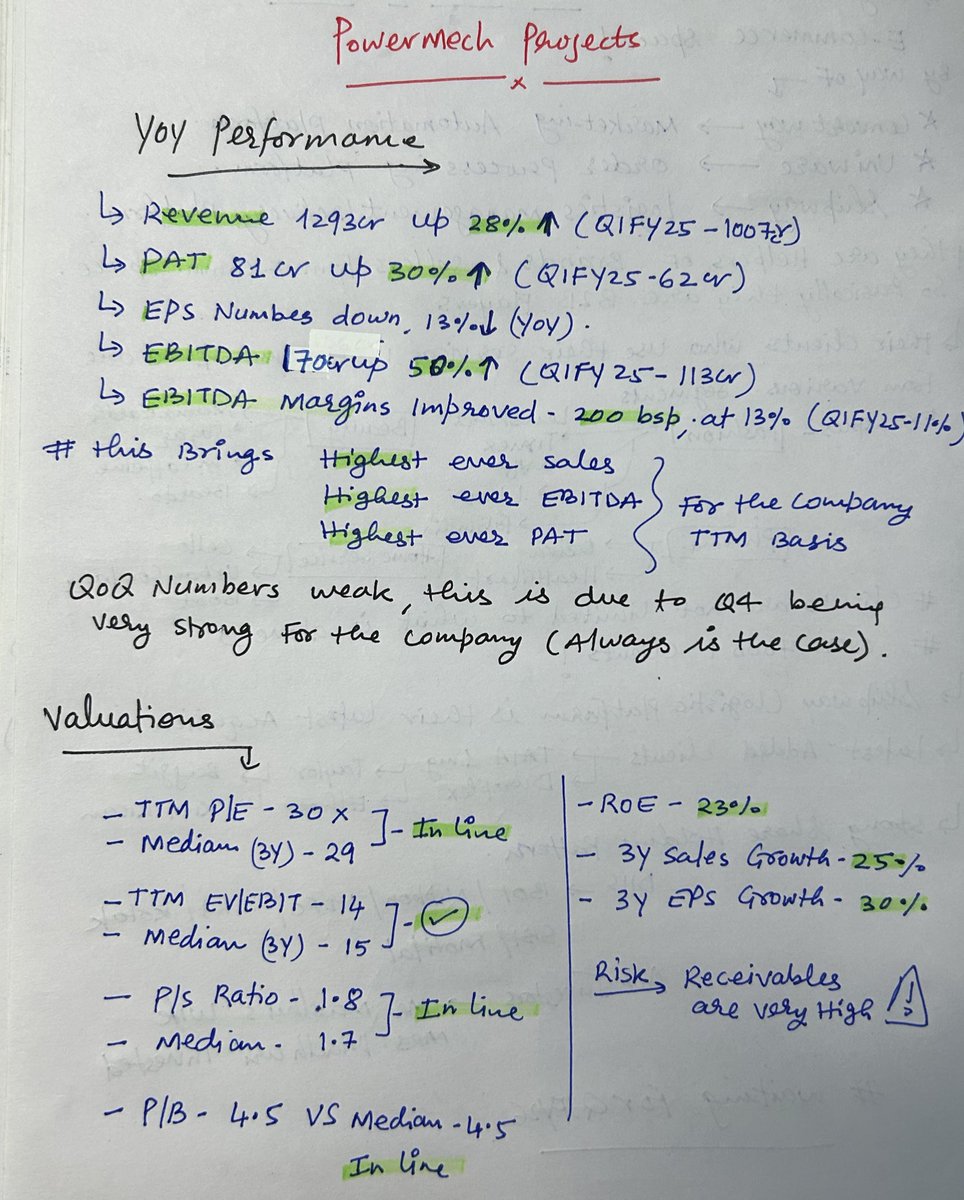 Powermech Projects
x
YoY Performance
↳ Revenue 1293cr up 28% ↑ (Q1FY25-1007cr)
↳ PAT 81 cr up 30% ↑ (Q1FY25-62cr)
↳ EPS Number down, 13%↓ (YoY).
↳ EBITDA 170cr up 50%↑ (Q1FY25-113cr)
↳ EBITDA Margins Improved - 200 bsp, at 13% (Q1FY25-11%)
# this Brings Highest ever sales
Highest ever EBITDA
Highest ever PAT
For the Company
TTM Basis
QoQ Numbers weak, this is due to Q4 being
very strong For the company (Always is the case).
Valuations
- TTM P/E - 30 x
- Median (3Y) - 29
- In line
- TTM EV/EBIT - 14
- Median (3Y) - 15
- ✓
- P/S Ratio - 1.8
- Median - 1.7
- In line
- P/B - 4.5 VS Median - 4.5
In line
- ROE - 23%
- 3Y Sales Growth - 25%
- 3Y EPS Growth - 30%
Risk → Receivables
are very High !